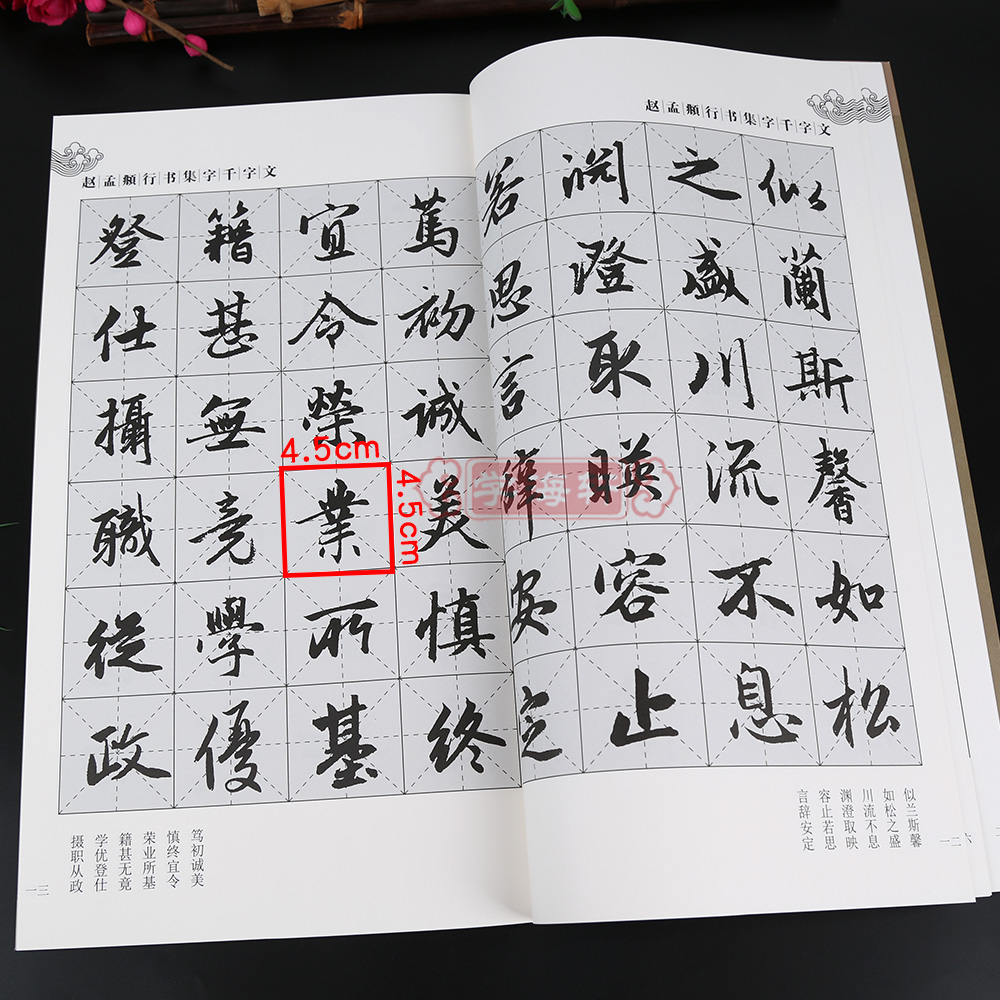 赵孟頫行书集字千字文
似蘭斯馨如松
之盛川流不息
渊澄取暎容止
若思言辞安定
似兰斯馨
如松之盛
川流不息
渊澄取映
容止若思
言辞安定
一二
赵孟頫行书集字千字文
篤初誠美慎終
宜令榮業所基
籍甚無竟學優
登仕攝職從政
4.5cm
4.5cm
笃初诚美
慎终宜令
荣业所基
籍甚无竟
学优登仕
摄职从政
一三